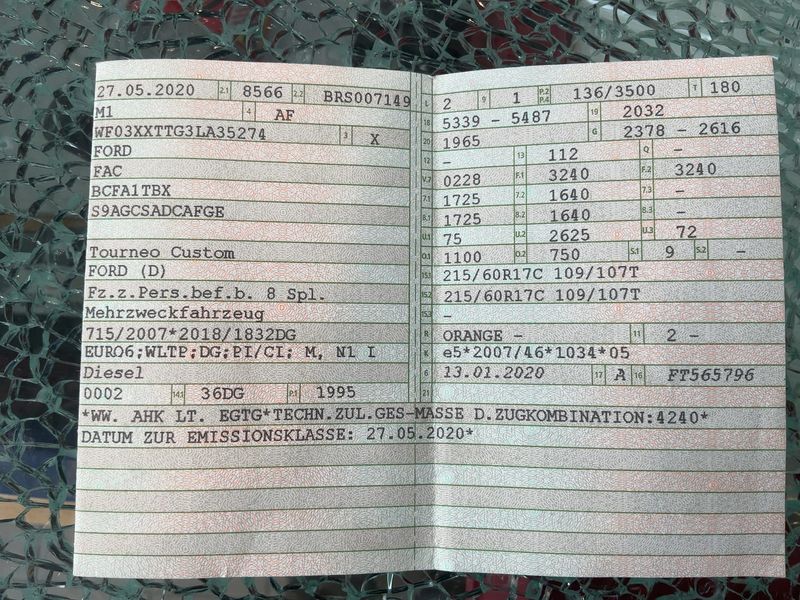 27.05.2020 2.1 8566 2.2 BRS007149
M1 4 AF
WF03XXTTG3LA35274 3 X
FORD
FAC
BCFA1TBX
S9AGCSADCAFGE
Tourneo Custom
FORD (D)
Fz.z.Pers.bef.b. 8 Spl.
Mehrzweckfahrzeug
715/2007*2018/1832DG
EURO6;WLTP;DG;PI/CI; M, N1 I
Diesel
0002 14.1 36DG P.1 1995
L 2 9 1 P.2 P.4 136/3500 T 180
18 5339 - 5487 19 2032
20 1965 G 2378 - 2616
12 - 13 112 Q -
V.7 0228 F.1 3240 F.2 3240
7.1 1725 7.2 1640 7.3 -
8.1 1725 8.2 1640 8.3 -
U.1 75 U.2 2625 U.3 72
O.1 1100 O.2 750 S.1 9 S.2 -
15.1 215/60R17C 109/107T
15.2 215/60R17C 109/107T
15.3 -
R ORANGE - 11 2 -
K e5*2007/46*1034*05
6 13.01.2020 17 A 16 FT565796
21
*WW. AHK LT. EGTG*TECHN.ZUL.GES-MASSE D.ZUGKOMBINATION:4240*
DATUM ZUR EMISSIONSKLASSE: 27.05.2020*